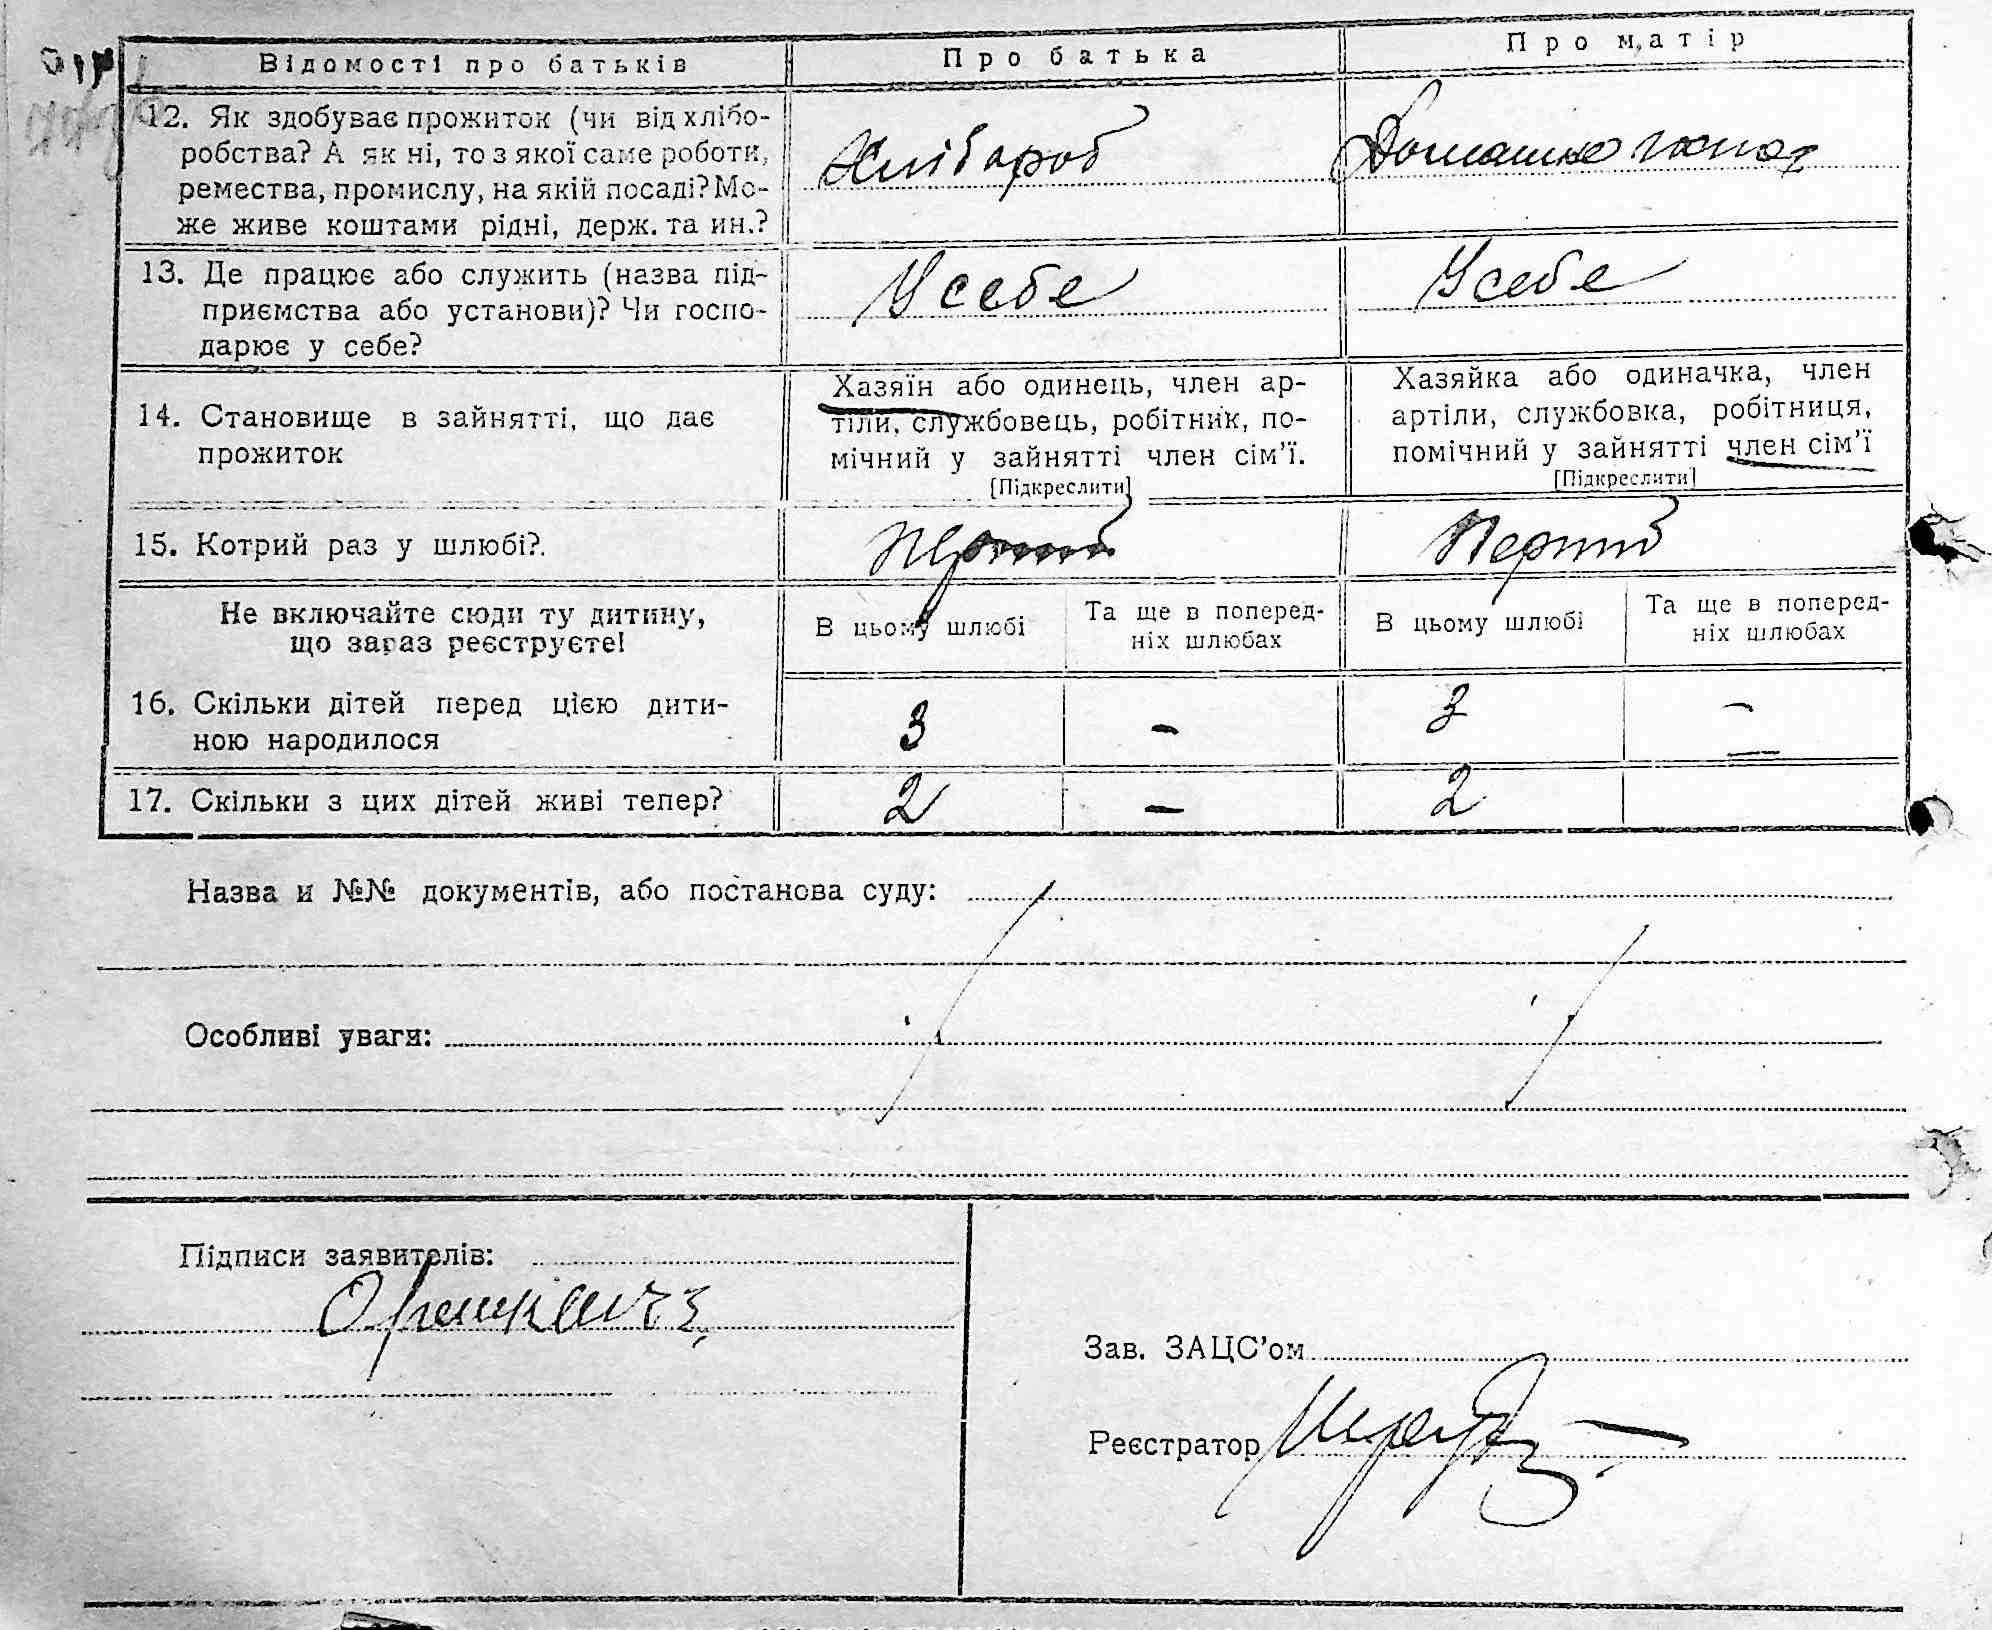 Відомості про батьків
Про батька
Про матір
12. Як здобуває прожиток (чи від хлібо-
робства? А як ні, то з якої саме роботи,
ремества, промислу, на якій посаді? Мо-
же живе коштами рідні, держ. та ин.?
Хлібороб
Домашне
13. Де працює або служить (назва під-
приємства або установи)? Чи госпо-
дарює у себе?
У себе
У себе
14. Становище в зайнятті, що дає
прожиток
Хазяїн або одинець, член ар-
тіли, службовець, робітник, по-
мічний у зайнятті член сім'ї.
[Підкреслити]
Хазяйка або одиначка, член
артіли, службовка, робітниця,
помічний у зайнятті член сім'ї
[Підкреслити]
15. Котрий раз у шлюбі?.
Перший
Перший
Не включайте сюди ту дитину,
що зараз реєструєте!
В цьому шлюбі
Та ще в поперед-
ніх шлюбах
В цьому шлюбі
Та ще в поперед-
ніх шлюбах
16. Скільки дітей перед цією дити-
ною народилося
3
-
3
-
17. Скільки з цих дітей живі тепер?
2
-
2
-
Назва и №№ документів, або постанова суду:
Особливі уваги:
Підписи заявителів:
Зав. ЗАЦС'ом
Реєстратор